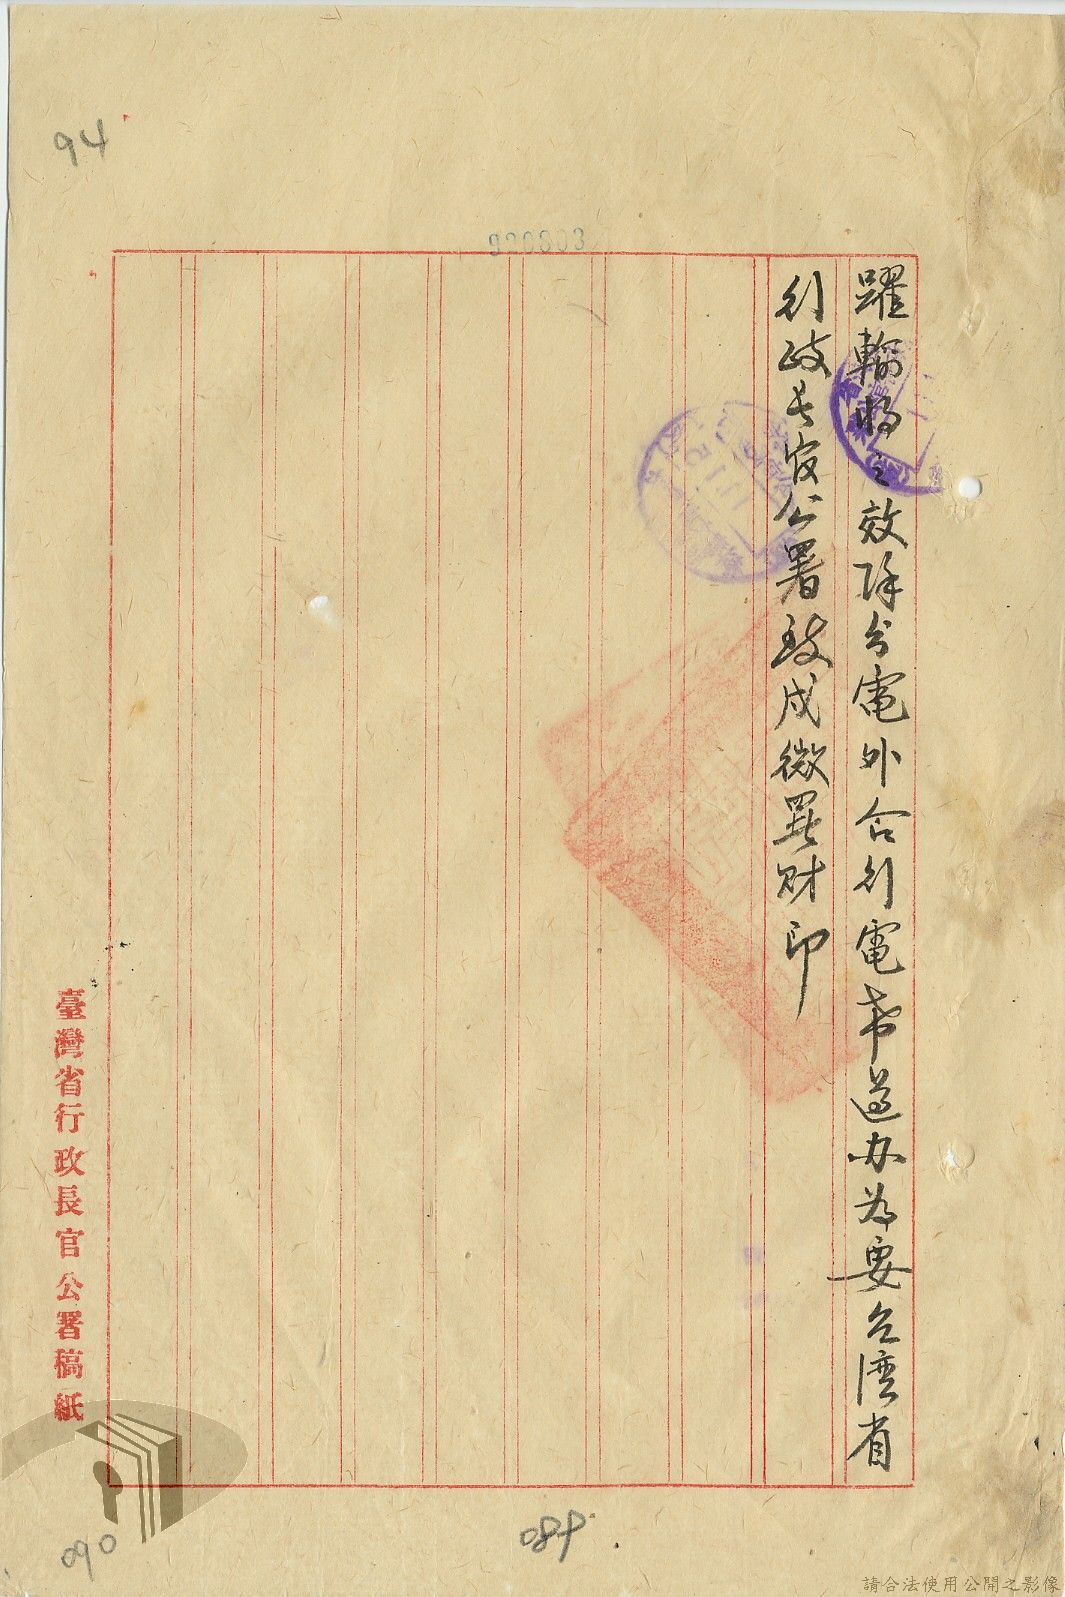 94
920803
躍輸將之效除分電外合行電希遵办為要台湾省
行政长官公署致戌微署财印
臺灣省行政長官公署稿紙
090
089
請合法使用公開之影像